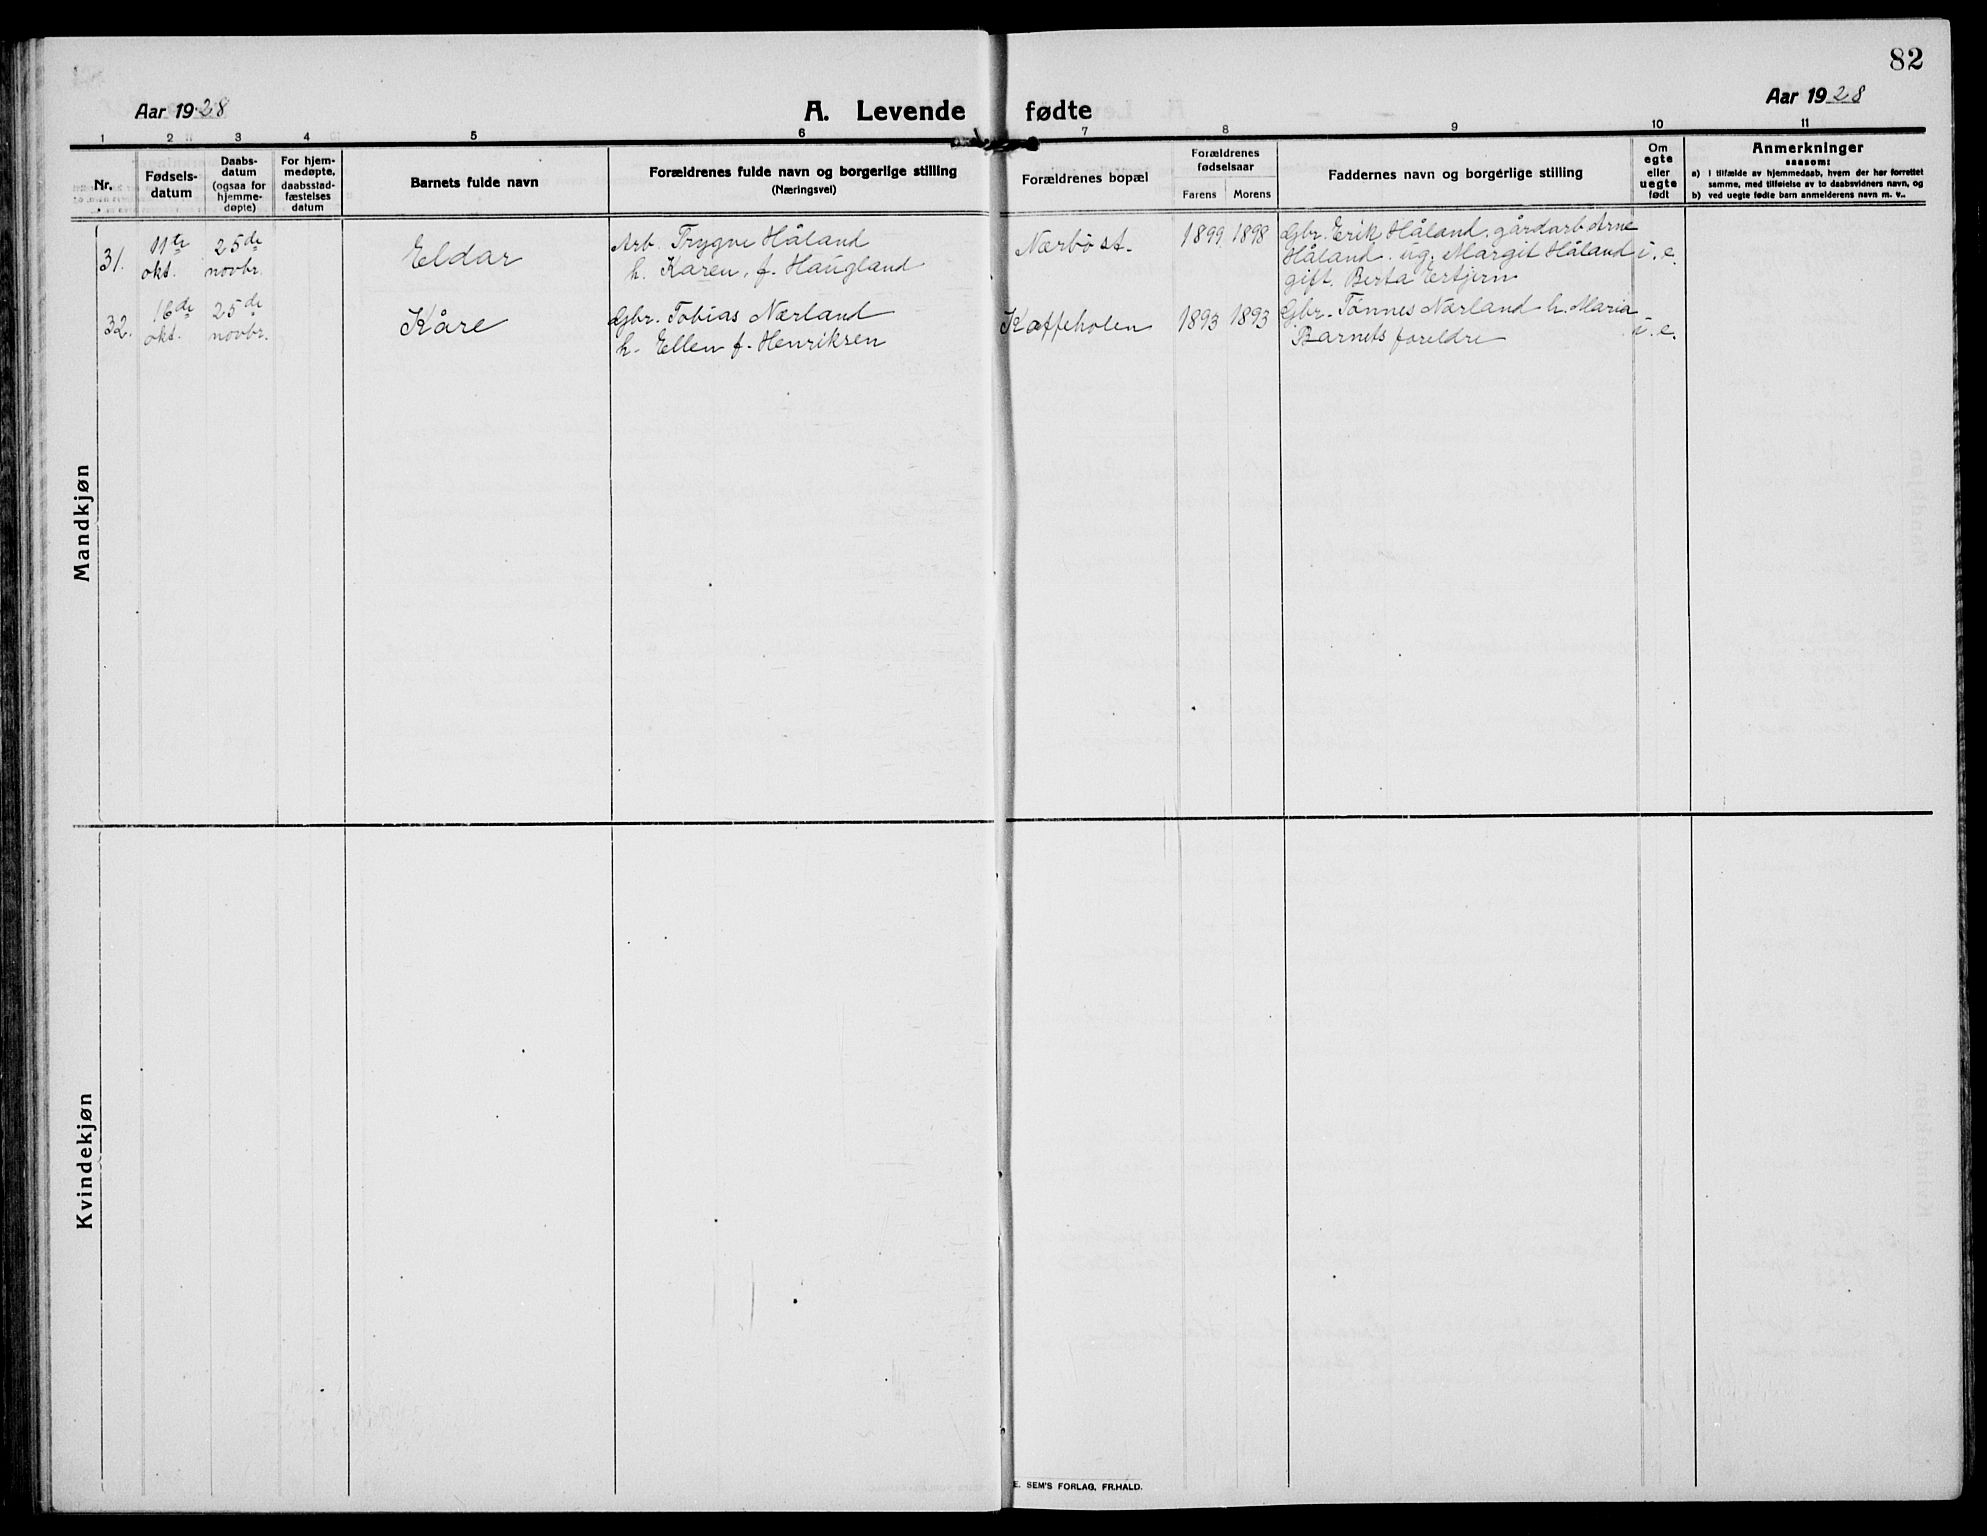 82
Aar 1928
A. Levende fødte
Aar 1928
1 2 3 4 5 6 7 8 9 10 11
Nr.
Fødsels-
datum
Daabs-
datum
(ogsaa for
hjemme-
døpte)
For hjem-
medøpte,
daabsstad-
fæstelses
datum
Barnets fulde navn
Forældrenes fulde navn og borgerlige stilling
(Næringsvei)
Forældrenes bopæl
Forældrenes
fødselsaar
Farens Morens
Faddernes navn og borgerlige stilling
Om
egte
eller
uegte
født
Anmerkninger
saasom:
a) I tilfælde av hjemmedaab, hvem der har forrettet
samme, med tilføielse av to daabsvidners navn, og
b) ved uegte fødte barn anmelderens navn m. v..
Mandkjøn
31.
11te
okt.
25de
novbr.
Eldar
Arb. Trygve Håland
h. Karen, f. Haugland
Nærbø st.
1899 1898
Gbr. Erik Håland, gårdarb Arne
Håland. ug. Margit Håland
gift. Berta Ertjern
i. e.
32.
16de
okt.
25de
novbr.
Kåre
Gbr. Tobias Nærland
h. Ellen f. Henriksen
Kaffeholen
1893 1893
Gbr. Tønnes Nærland h. Maria
Barnets foreldre
i. e.
Kvindekjøn
E. SEM'S FORLAG, FR.HALD.